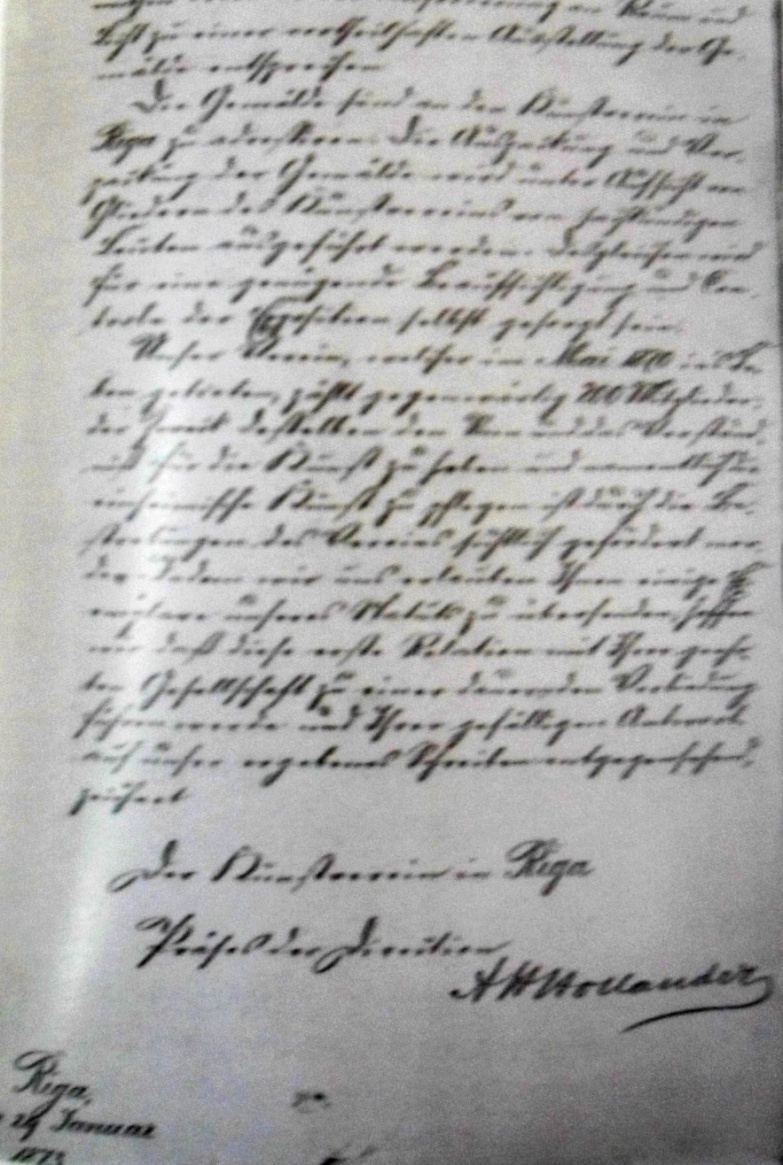 an Raum und
Licht zu einer vortheilhaften Aufstellung der Ge-
mälde entsprechen
Die Gemälde sind an den Kunstverein in
Riga zu adressiren. Die Auspackung und Ver-
packung der Gemälde wird unter Aufsicht von
Gliedern des Kunstvereins von zuständigen
Leuten ausgeführt werden. Desgleichen wird
für eine genügende Beaufsichtigung und Con-
trole der Exposition selbst gesorgt sein.
Unser Verein, welcher im Mai 1870 ins Le-
ben getreten, zählt gegenwärtig 200 Mitglieder,
der Zweck desselben den Sinn und das Verständ-
niß für die Kunst zu heben und namentlich die
einheimische Kunst zu pflegen ist durch die Be-
strebungen des Vereins sichtlich gefördert wor-
den. Indem wir uns erlauben Ihnen einige Ex-
emplare unseres Statuts zu übersenden, hoffen
wir daß diese erste Relation mit Ihrer geehr-
ten Gesellschaft zu einer dauernden Verbindung
führen werde und Ihrer gefälligen Antwort
auf unser ergebenes Schreiben entgegensehend,
zeichnet
Der Kunstverein in Riga
Präses der Direction
A H Hollander
Riga,
29 Januar
1873